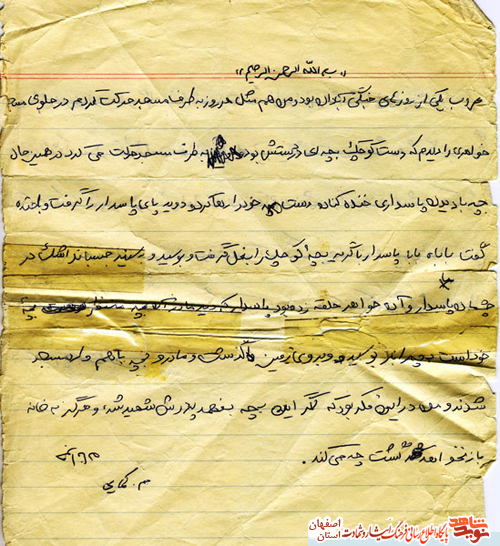 «بسم الله الرحمن الرحیم»
غروب یکی از روزهای جنگی آبادان بود و من هم مثل هر روز به طرف مسجد حرکت کردم در جلوی مسجد
خواهری را دیدم که دست کوچک بچه ای در دستش بود به طرف مسجد حرکت می کرد در همین حال
بچه با دیدن پاسداری خنده کنان دست خود را رها کرد و دوید پای پاسدار را گرفت و با خنده
گفت بابا، بابا پاسدار با گریه بچه کوچک را بغل گرفت و بوسید و به سینه چسباند اشک در
چشمان پاسدار و آن خواهر حلقه زده بود پاسدار که دید مادر آن بچه منتظر بچه
خود است بچه را بوسید و بروی زمین گذاشت و مادر و بچه باهم وارد مسجد
شدند و من در این فکر بودم که اگر این بچه بفهمد پدرش شهید شده و هرگز به خانه
باز نخواهد گشت چه می کند.
م.
نوید شاهد
پایگاه اطلاع رسانی فرهنگ ایثار و شهادت
استان اصفهان